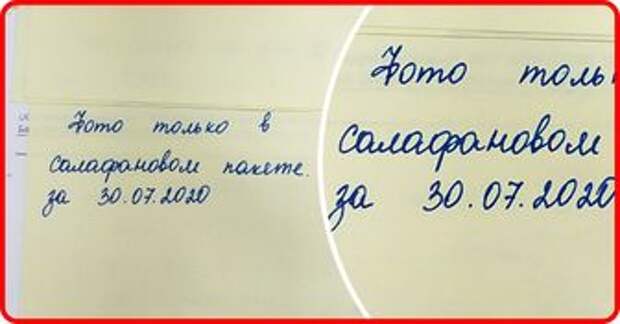 Фото только в
салафановом пакете.
за 30.07.2020
Фото тольк
салафановом
за 30.07.2020